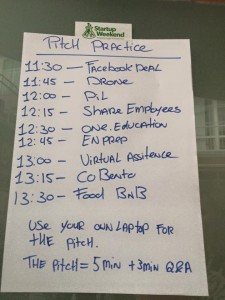 Startup
Weekend
Pitch Practice
11:30 — Facebook Deal
11:45 — Drone
12:00 — PiL
12:15 — Share Employees
12:30 — One.Education
12:45 — ENPREP
13:00 — Virtual Assitence
13:15 — CoBento
13:30 — Food BnB
Use your own laptop for
the pitch.
The pitch = 5 min + 3 min Q&A